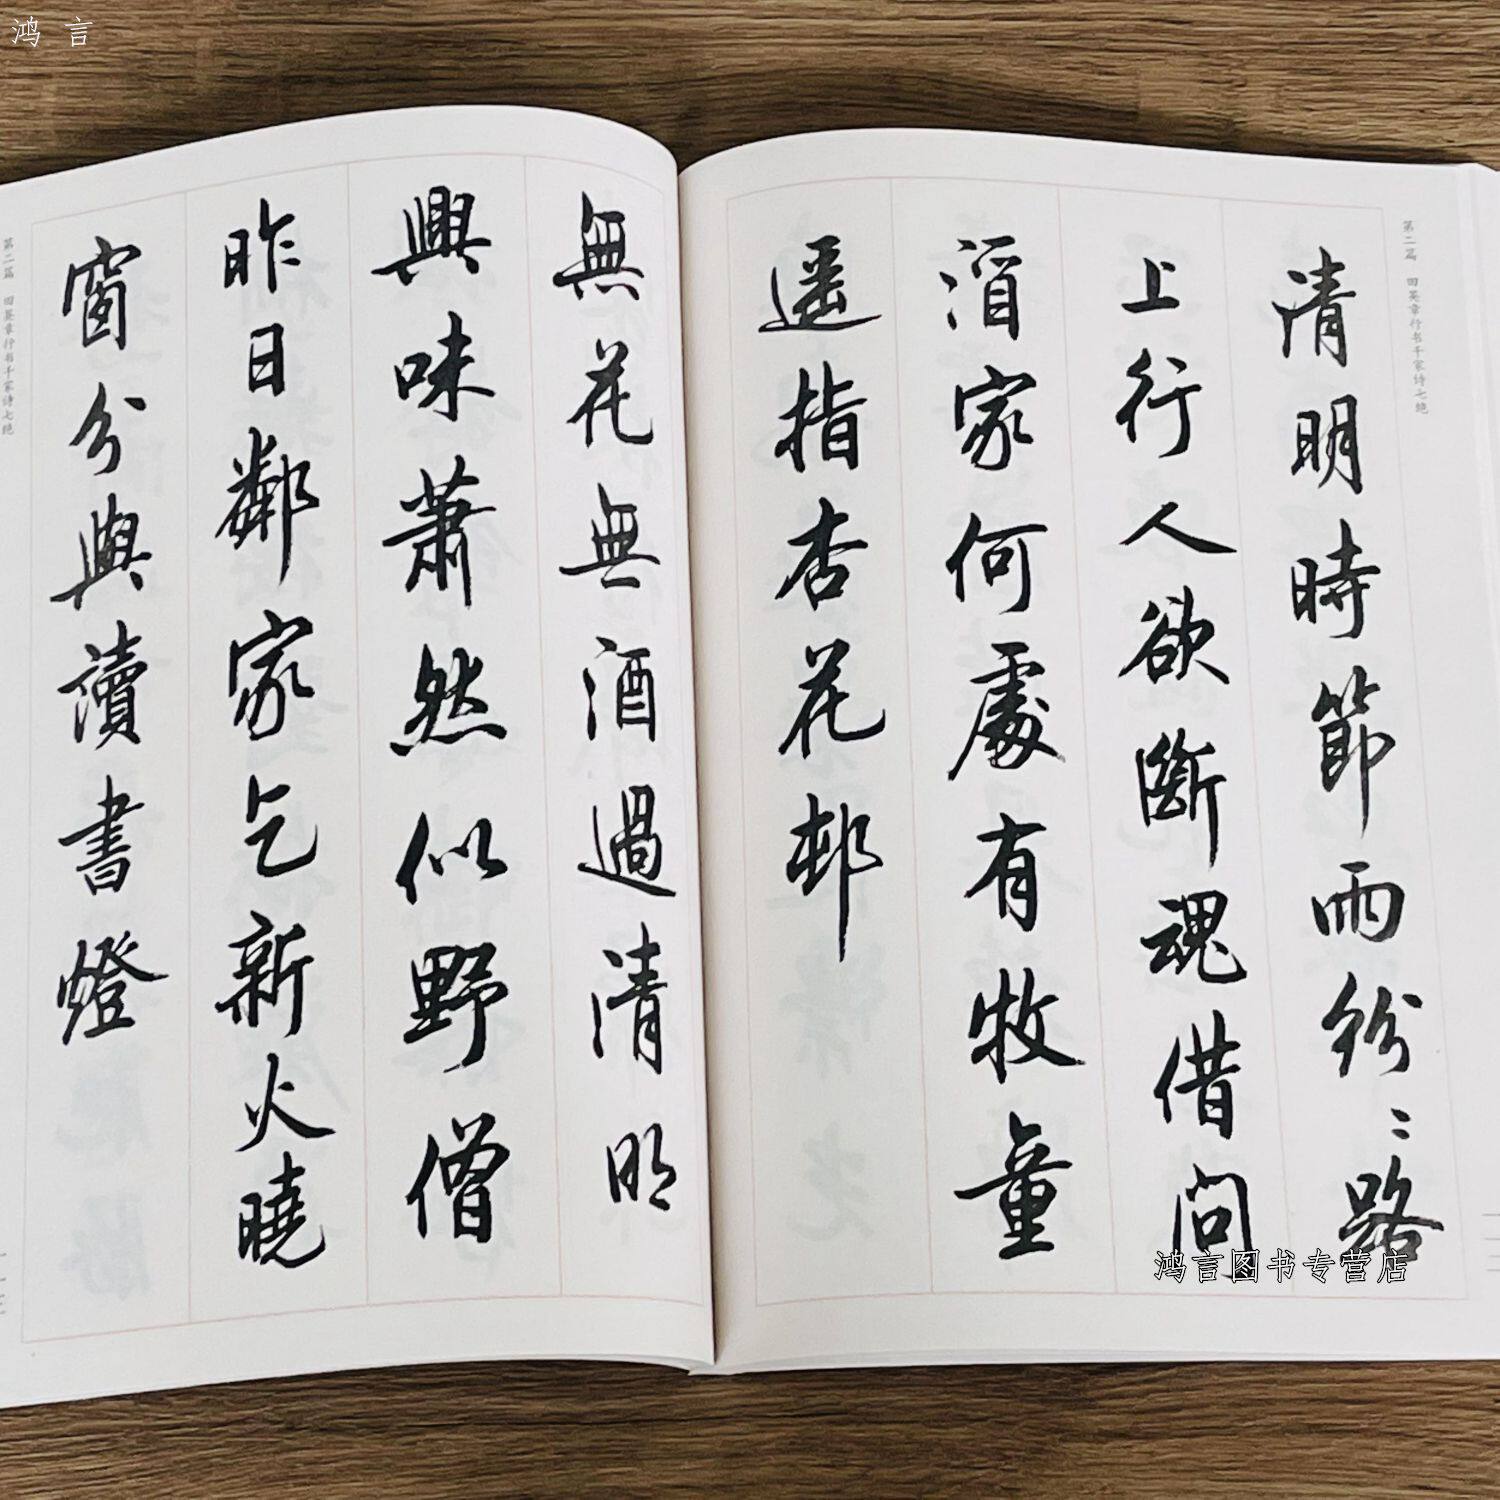 鸿 言
第二篇 田英章行书千家诗七绝
清明時節雨紛〻路
上行人欲斷魂借問
酒家何處有牧童
遥指杏花邨
無花無酒過清明
興味蕭然似野僧
昨日鄰家乞新火曉
窗分與讀書燈
第二篇 田英章行书千家诗七绝
鸿言图书专营店